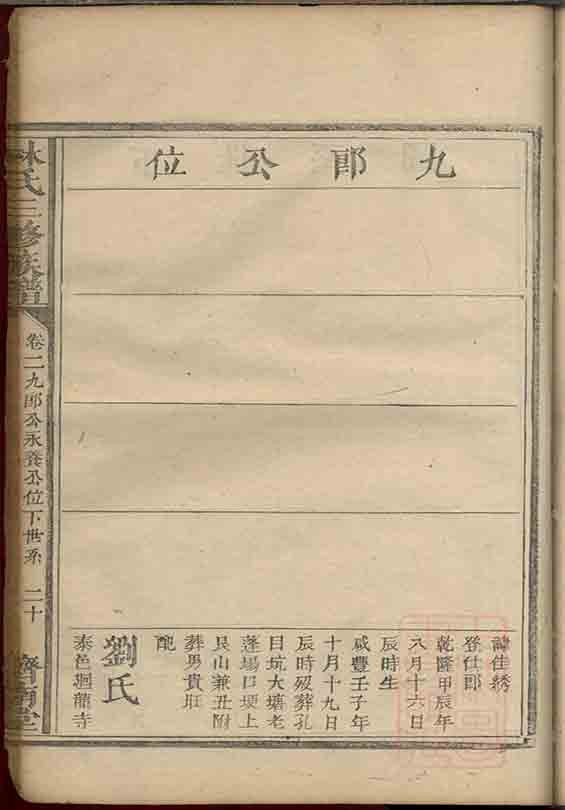 九郎公位
諱佳綉
登仕郎
乾隆甲辰年
八月十六日
辰時生
咸豐壬子年
十月十九日
辰時殁葬孔
目坑大壙老
蓬場口埂上
艮山兼丑附
葬男貴班
配
劉氏
泰邑廻龍寺
林氏三修族譜
卷二九郎公永養公位下世系
二十
濟南堂